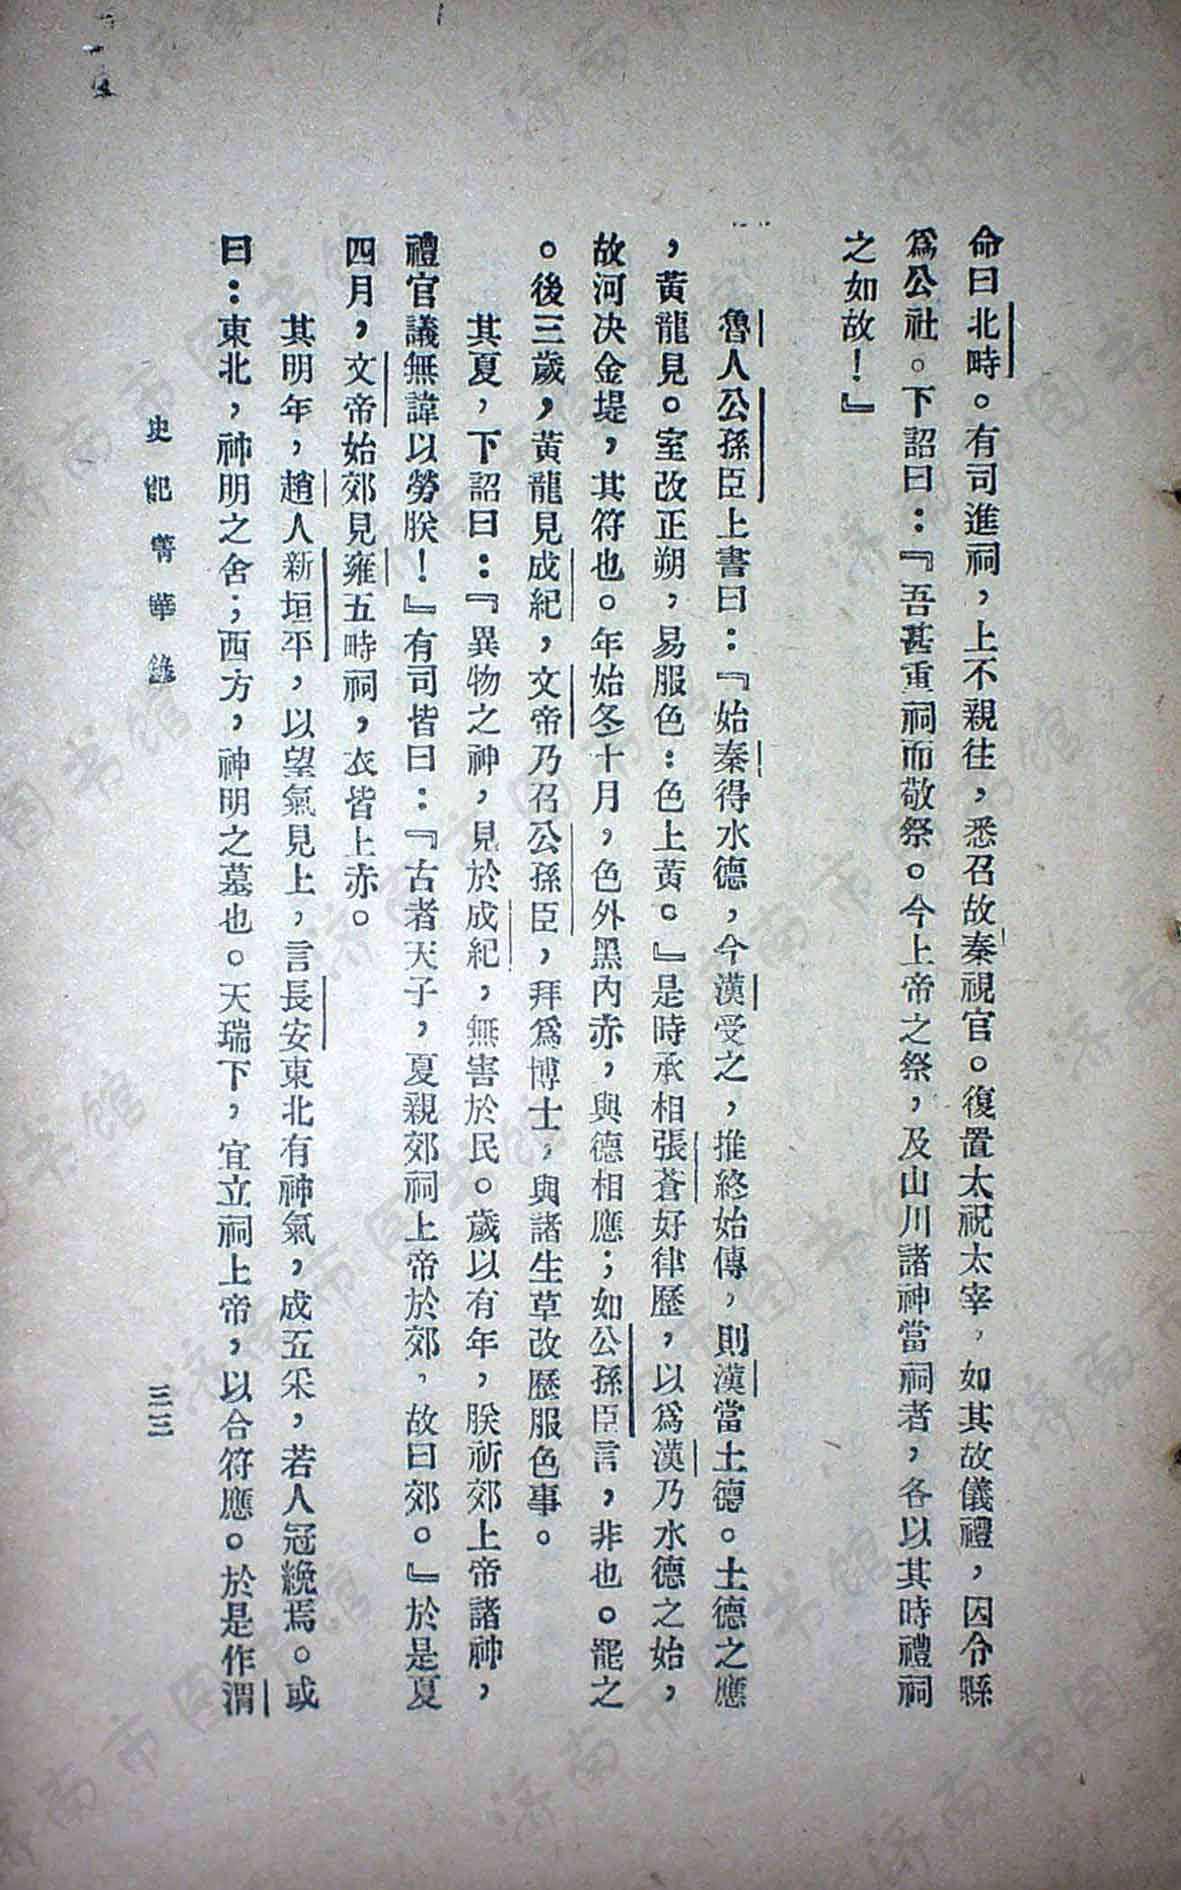 命曰北畤。有司進祠，上不親往，悉召故秦視官。復置太祝太宰，如其故儀禮，因令縣
爲公社。下詔曰：『吾甚重祠而敬祭。今上帝之祭，及山川諸神當祠者，各以其時禮祠
之如故！』
魯人公孫臣上書曰：『始秦得水德，今漢受之，推終始傳，則漢當土德。土德之應
，黃龍見。室改正朔，易服色：色上黃。』是時承相張蒼好律歷，以爲漢乃水德之始，
故河決金堤，其符也。年始冬十月，色外黑內赤，與德相應；如公孫臣言，非也。罷之
。後三歲，黃龍見成紀，文帝乃召公孫臣，拜爲博士，與諸生草改歷服色事。
其夏，下詔曰：『異物之神，見於成紀，無害於民。歲以有年，朕祈郊上帝諸神，
禮官議無諱以勞朕！』有司皆曰：『古者天子，夏親郊祠上帝於郊，故曰郊。』於是夏
四月，文帝始郊見雍五畤祠，衣皆上赤。
其明年，趙人新垣平，以望氣見上，言長安東北有神氣，成五采，若人冠絻焉。或
曰：東北，神明之舍；西方，神明之墓也。天瑞下，宜立祠上帝，以合符應。於是作渭
史記菁華錄
三三
济南市图书馆